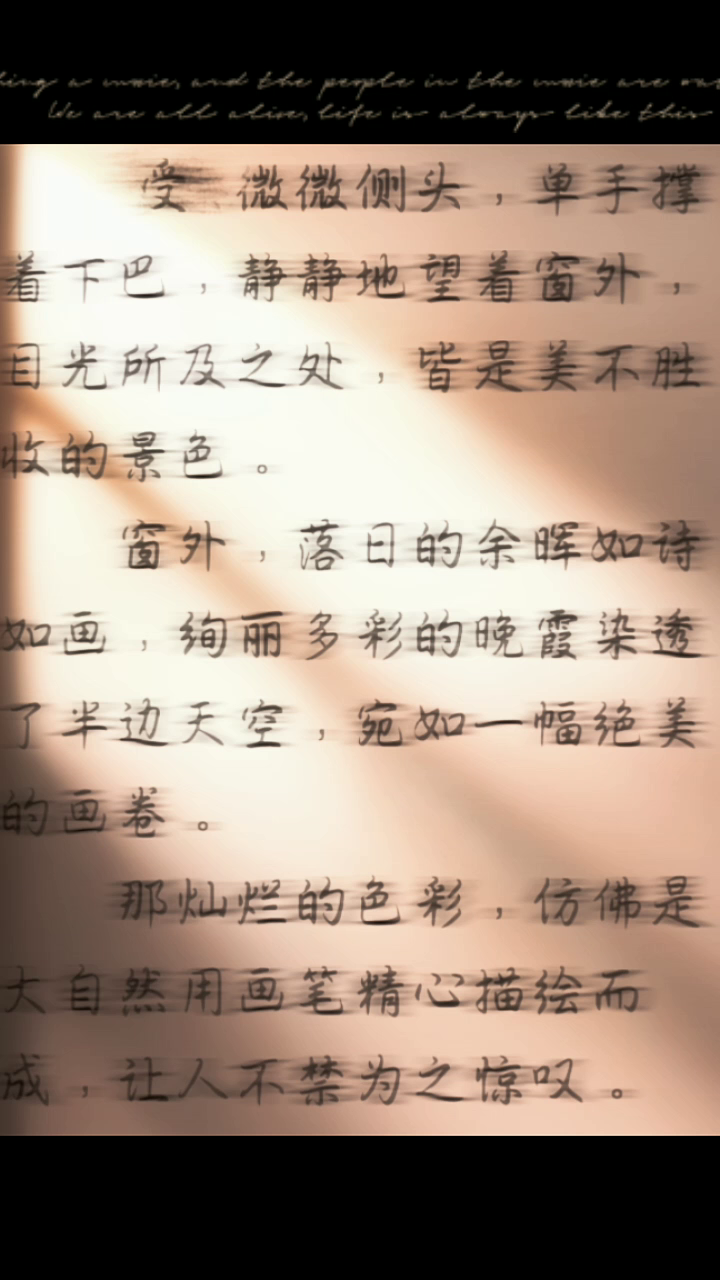 a movie, and the people in the movie are
We are all alive, life is always like this
受 微微侧头，单手撑
着下巴，静静地望着窗外，
目光所及之处，皆是美不胜
收的景色。
窗外，落日的余晖如诗
如画，绚丽多彩的晚霞染透
了半边天空，宛如一幅绝美
的画卷。
那灿烂的色彩，仿佛是
大自然用画笔精心描绘而
成，让人不禁为之惊叹。